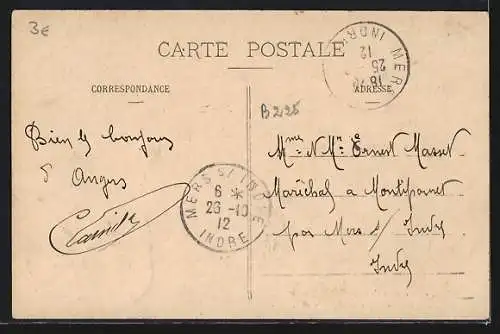 3€
CARTE POSTALE
CORRESPONDANCE
ADRESSE
MERS
INDRE
18
25
12
B225
Bien le bonjour
d'Angers
Camille
MERS S/ INDRE
6 *
26-10
12
INDRE
Mme & Mr Ernest Masset
Maréchal a Montipouret
par Mers s/ Indre
Indre